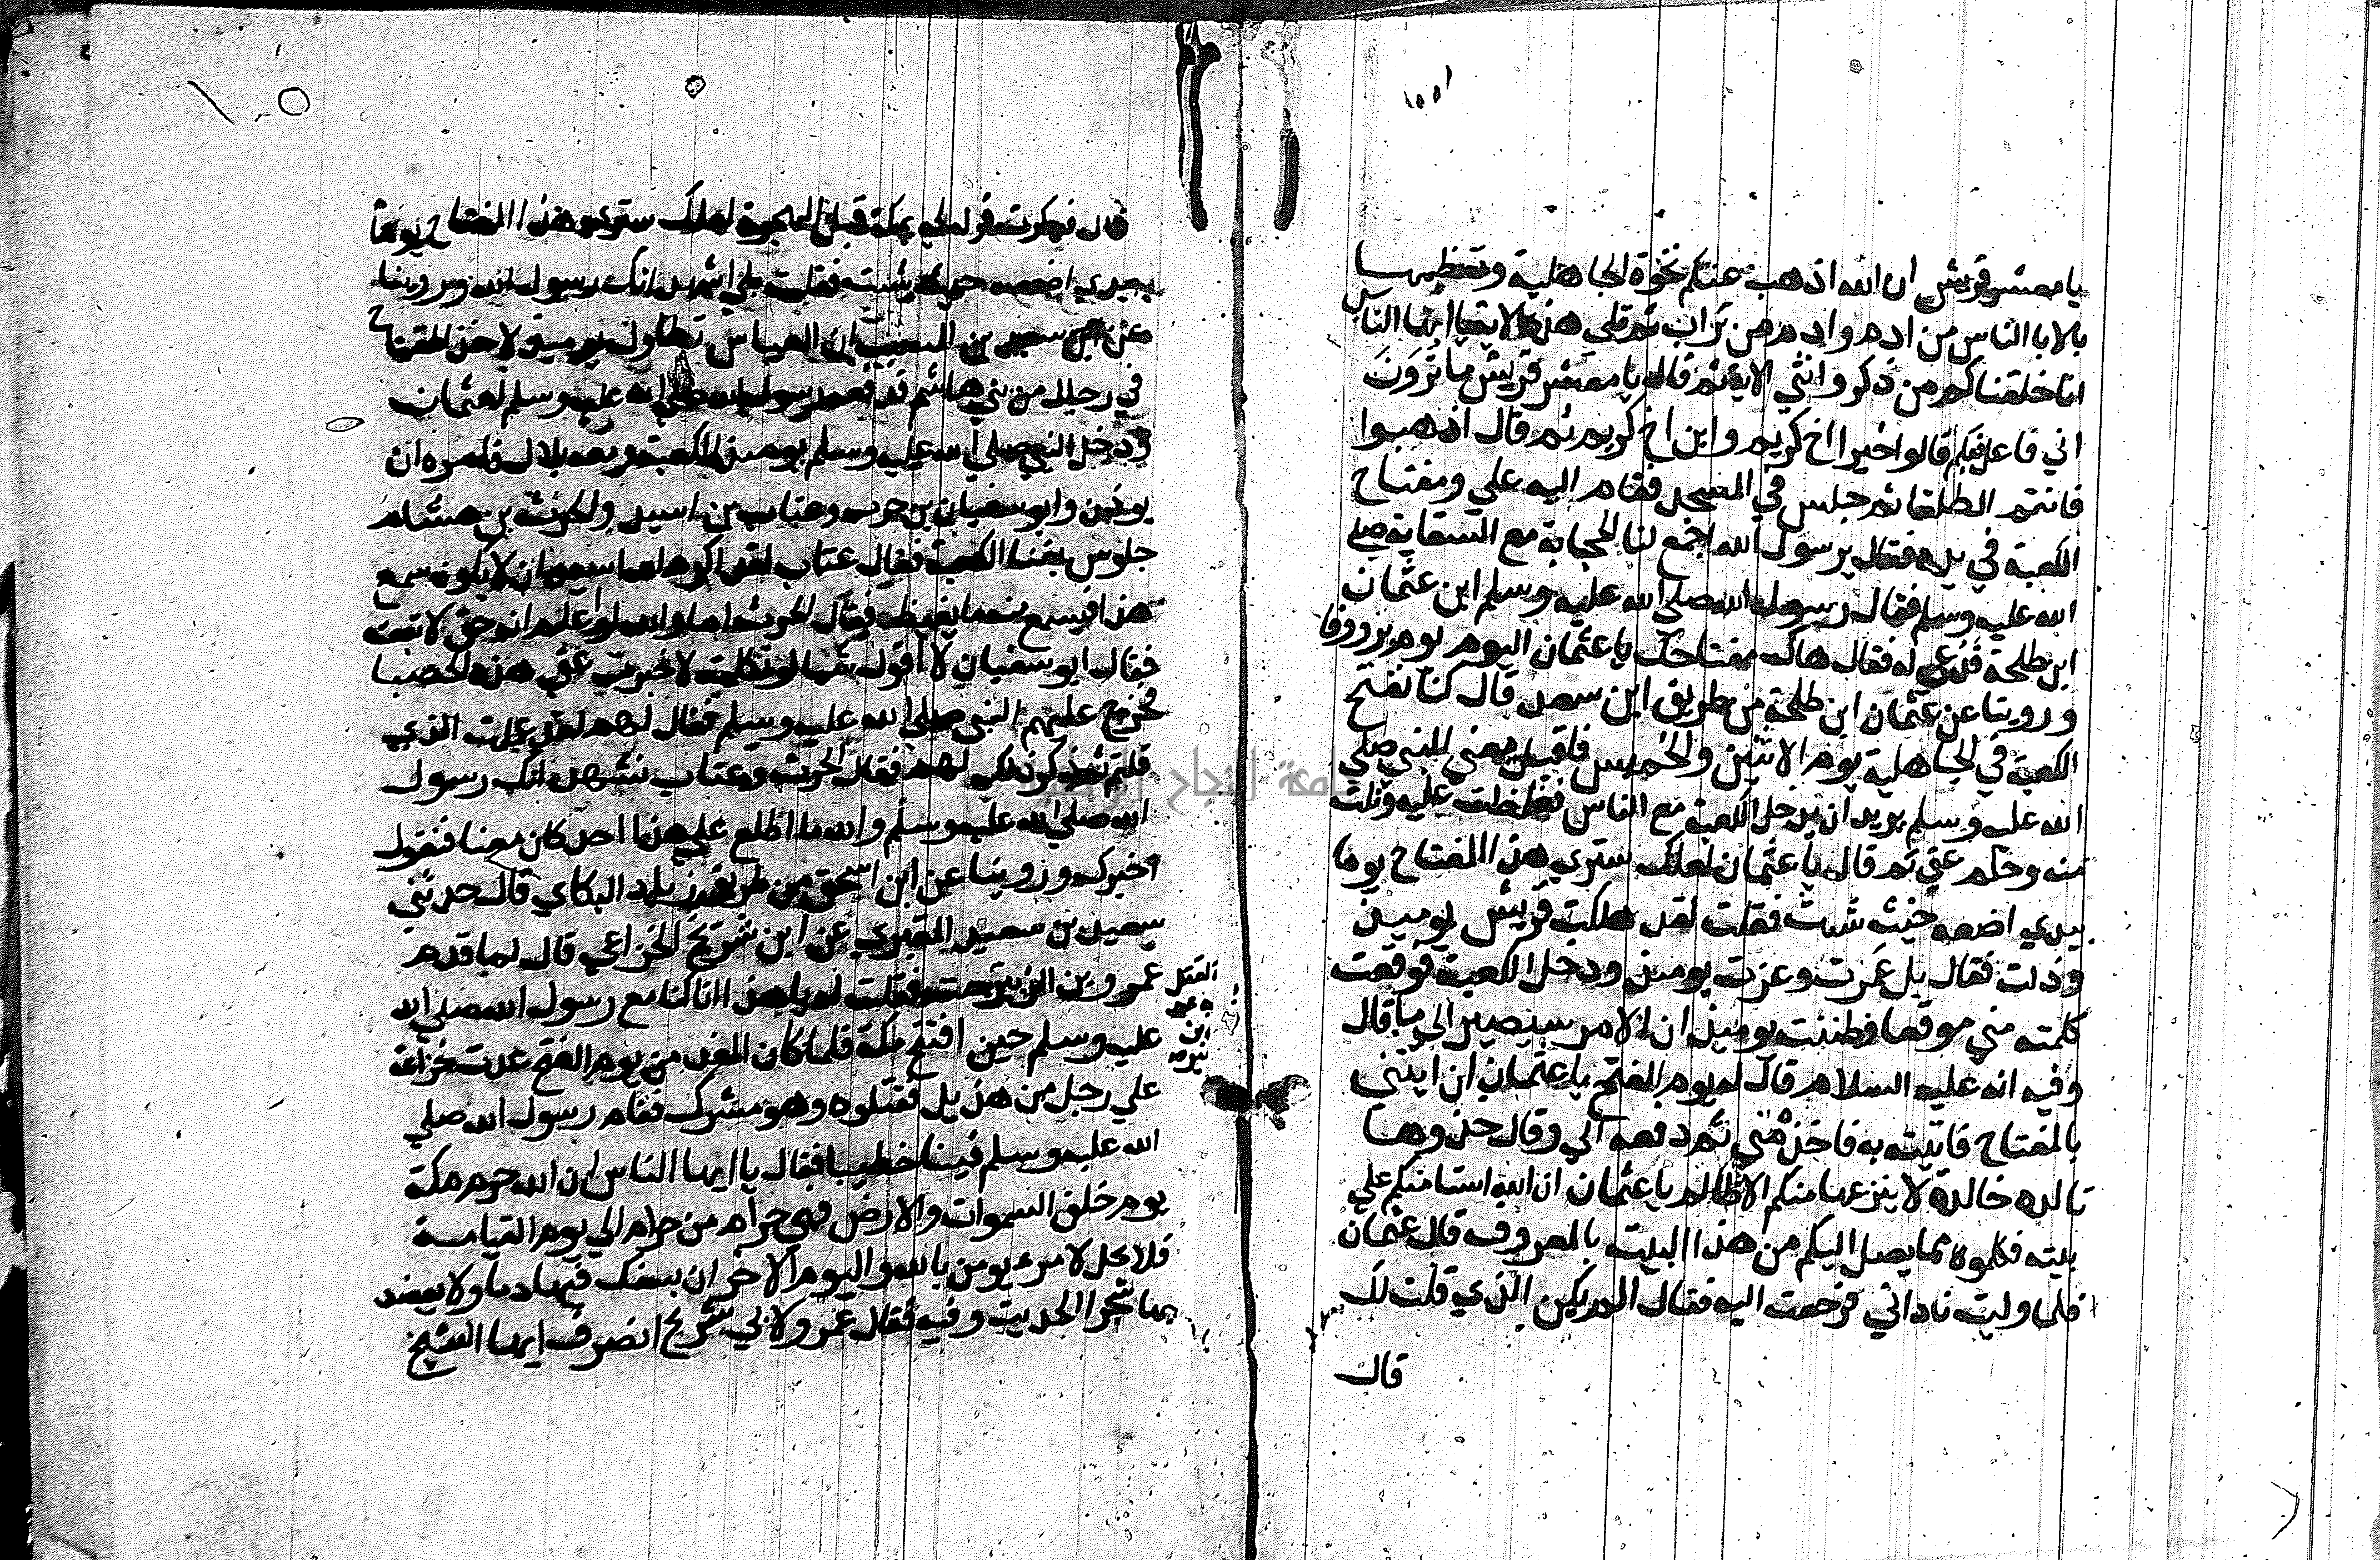 يا معشر قريش ان الله اذهب عنكم نخوة الجاهلية وتعظيمها
بالابا الناس من ادم وادم من تراب ثم تلى هذه الاية يا ايها الناس
انا خلقناكم من ذكر وانثي الاية ثم قال يا معشر قريش ما تُرَوَنَ
اني فاعل فيكم قالوا خيرا اخ كريم وابن اخ كريم ثم قال اذهبوا
فانتم الطلقا ثم جلس في المسجد فقام اليه علي ومفتاح
الكعبة في يده فقال يرسول الله اجمع لنا الحجابة مع السقاية صلي
الله عليه وسلم فقال رسول الله صلي الله عليه وسلم اين عثمان
ابن طلحة فدعي له فقال هاك مفتاحك يا عثمان اليوم يوم بر ووفا
وروينا عن عثمان ابن طلحة من طريق ابن سعد قال كنا نفتح
الكعبة في الجاهلية يوم الاثنين والخميس فاقبل يعني النبي صلي
الله عليه وسلم يريد ان يدخل الكعبة مع الناس فغلظت عليه ونلت
منه وحلم عني ثم قال يا عثمان لعلك ستري هذا المفتاح يوما
بيدي اضعه حيث شئت فقلت لقد هلكت قريش يوميذ
وذلت فقال بل عمرت وعزت يوميذ ودخل الكعبة فوقعت
كلمته مني موقعا فظننت يوميذ ان الامر سيصير الي ما قال
وفيه انه عليه السلام قال له يوم الفتح يا عثمان ايتني
بالمفتاح فاتيته به فاخذه مني ثم دفعه الي وقال خذوها
تالده خالدة لا ينزعها منكم الا ظالم يا عثمان ان الله استامنكم علي
بيته فكلوه مما يصل اليكم من هذا البيت بالمعروف قال عثمان
فلما وليت ناداني فرجعت اليه فقال الم يكن الذي قلت لك
قال
١٠٥
قال فذكرت قوله لي بمكة قبل الهجرة لعلك ستري هذا المفتاح يوما
بيدي اضعه حيث شئت فقلت بلي اشهد انك رسول الله وروينا
عن سعيد بن المسيب ان العباس تطاول يوميذ لاخذ المفتاح
في رجال من بني هاشم فدفعه رسول الله صلي الله عليه وسلم لعثمان
ودخل النبي صلي الله عليه وسلم يوميذ الكعبة ومعه بلال فامره ان
يوذن وابو سفيان بن حرب وعتاب بن اسيد والحرث بن هشام
جلوس بفنا الكعبة فقال عتاب لقد اكرم الله اسيد ان لا يكون سمع
هذا فيسمع منه ما يغيظه فقال الحرث اما والله لو اعلم انه حق لاتبعته
فقال ابو سفيان لا اقول شيا لو تكلمت لاخبرت عني هذه الحصبا
فخرج عليهم النبي صلي الله عليه وسلم فقال لهم لقد علمت الذي
قلتم ثم ذكر ذلك لهم فقال الحرث وعتاب نشهد انك رسول
الله صلي الله عليه وسلم والله ما اطلع علي هذا احد كان معنا فنقول
اخبرك وروينا عن ابن اسحق من طريق زياد البكاي قال حدثني
سعيد بن سعيد المقبري عن ابن شريح الخزاعي قال لما قدم
عمرو بن الزبير فقلت له يا هذا انا كنا مع رسول الله صلي الله
عليه وسلم حين افتتح مكة فلما كان الغد من يوم الفتح عدت خزاعة
علي رجل من هذيل فقتلوه وهو مشرك فقام رسول الله صلي
الله عليه وسلم فينا خطيبا فقال يا ايها الناس ان الله حرم مكة
يوم خلق السموات والارض فهي حرام من حرام الي يوم القيامة
فلا يحل لامرء يومن بالله واليوم الاخر ان يسفك فيها دما ولا يعضد
بها شجرا الحديث وفيه فقال عمرو لابي شريح انصرف ايها الشيخ